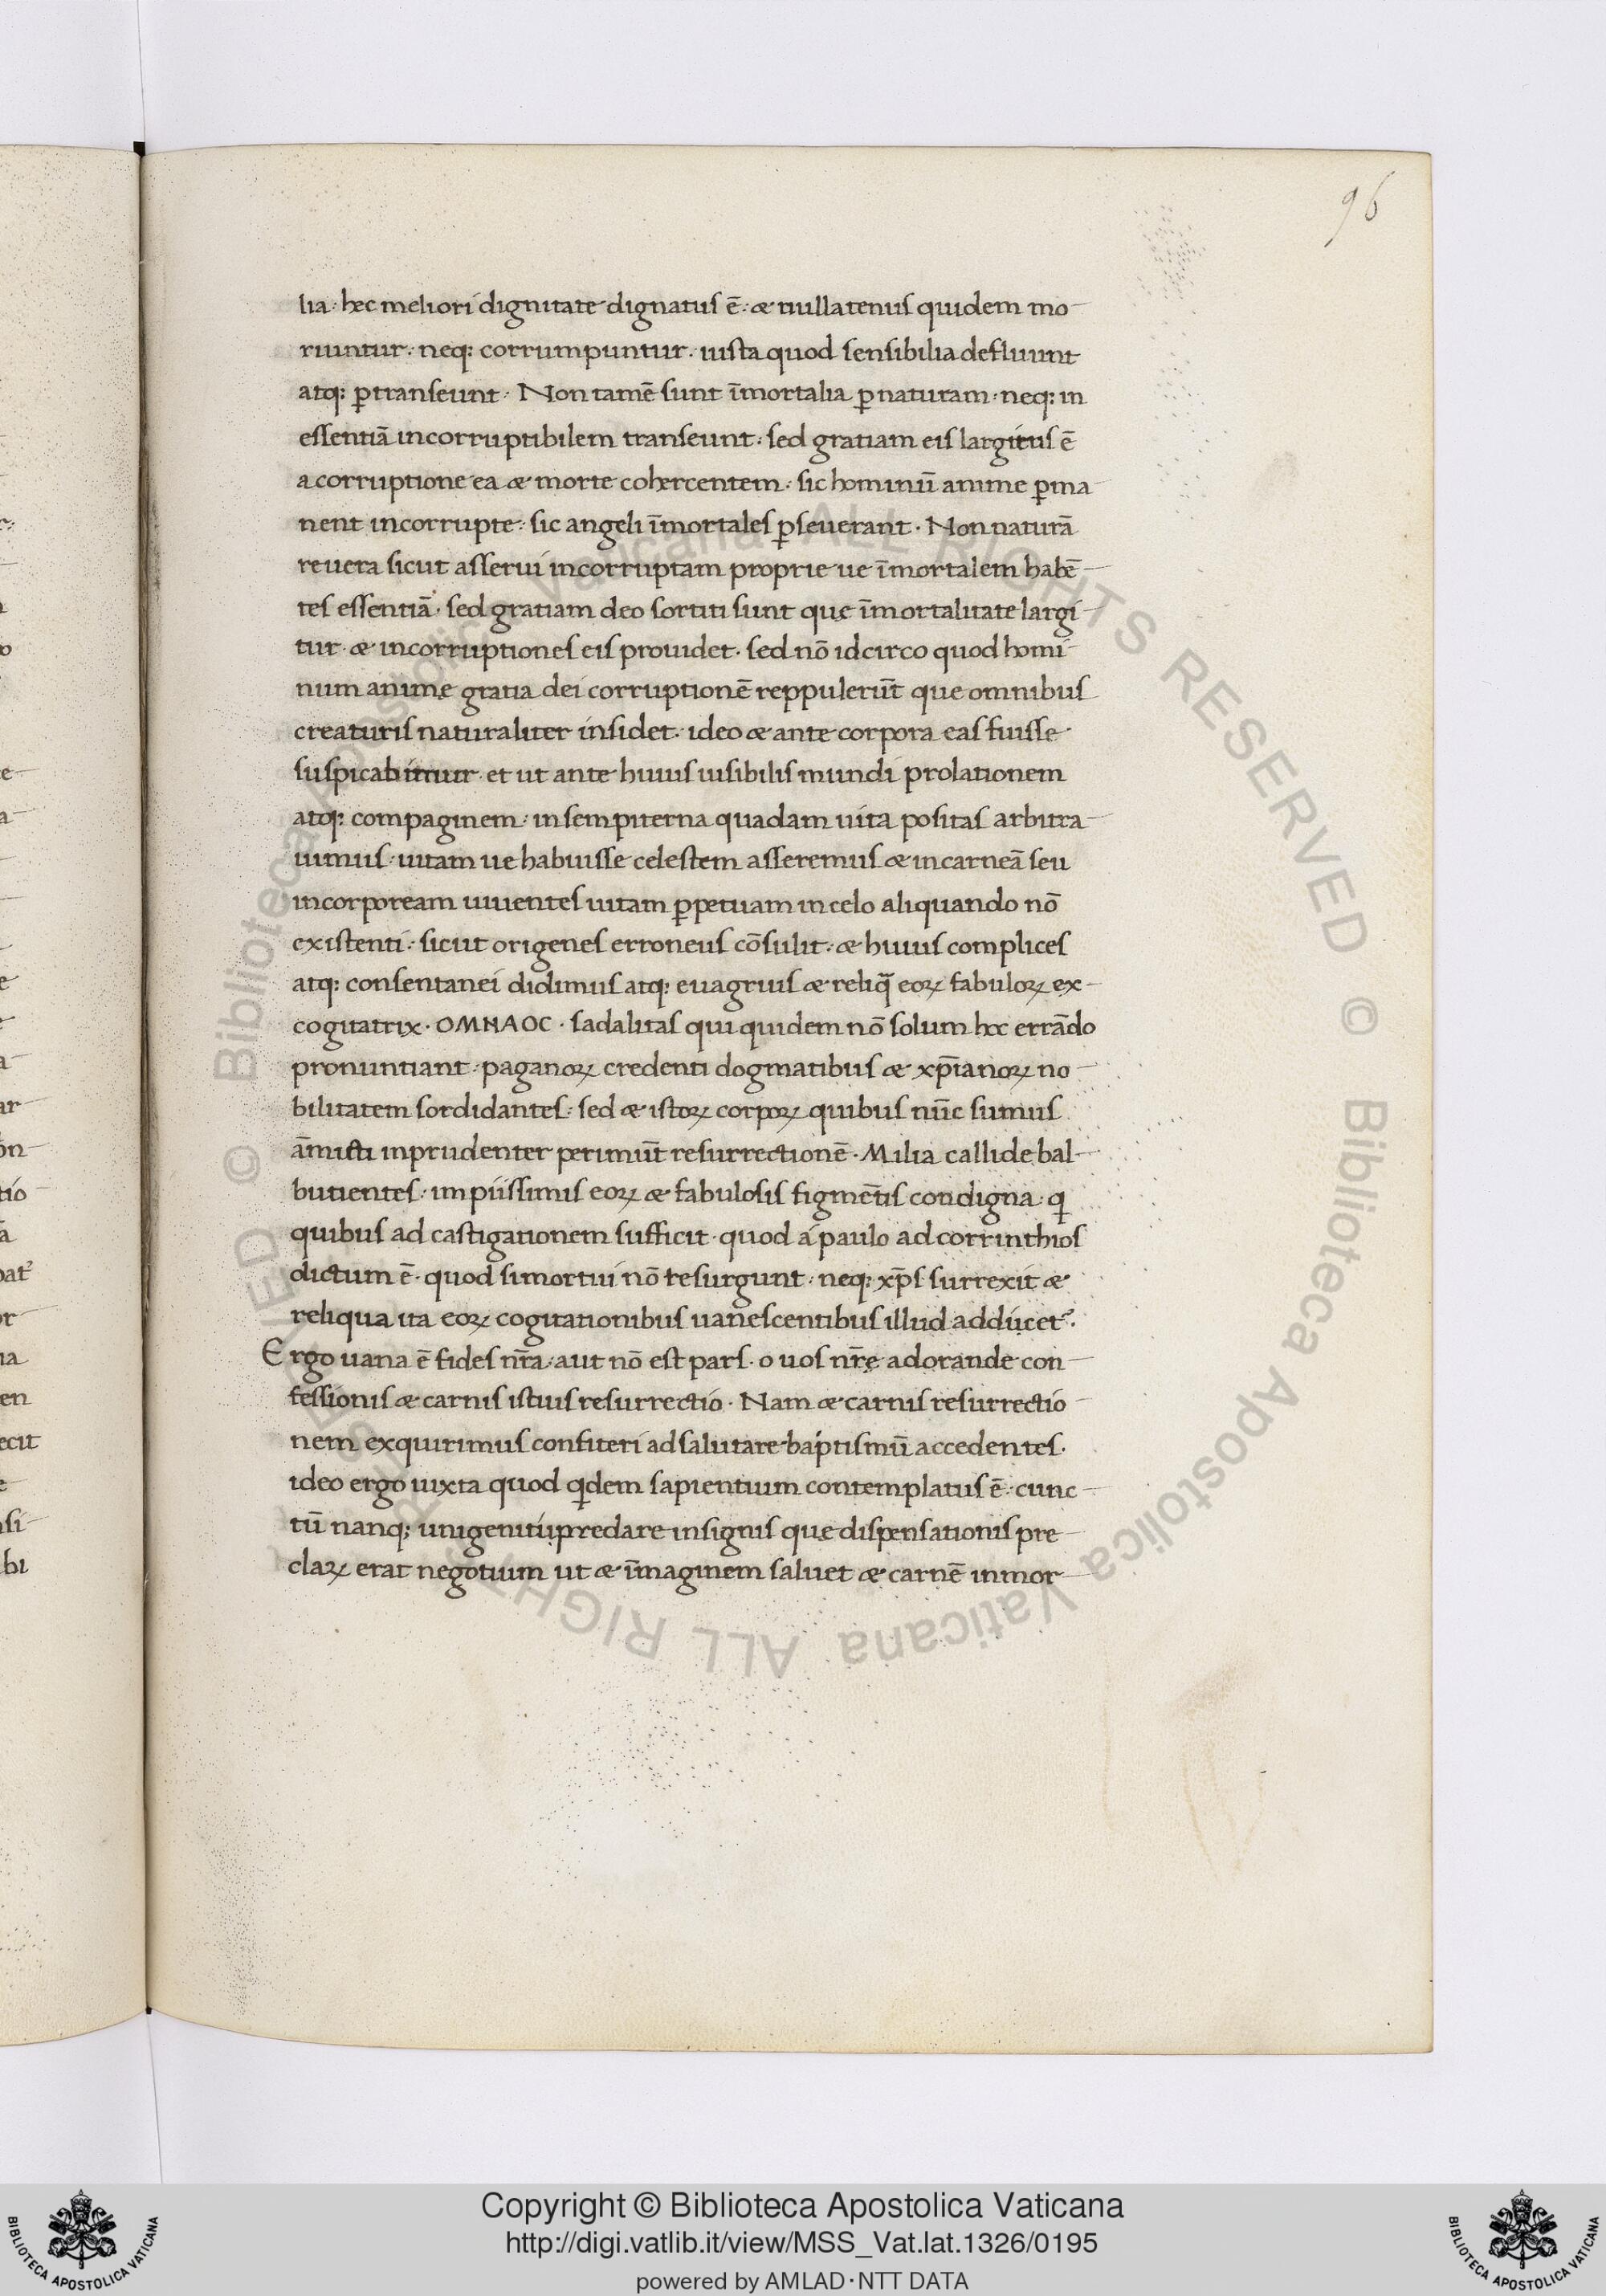 96
lia · hęc meliori dignitate dignatus ē · & nullatenus quidem mo-
riuntur · neq: corrumpuntur · iusta quod sensibilia defluunt
atq: ꝑtranseunt · Non tamē sunt īmortalia ꝑ naturam · neq: in
essentiā incorruptibilem transeunt · sed gratiam eis largitus ē
a corruptione ea & morte cohercentem · sic hominū anime ꝑma-
nent incorrupte · sic angeli īmortales ꝑseuerant · Non naturā
reuera sicut asserui incorruptam proprie ue īmortalem habē-
tes essentiā · sed gratiam deo sortiti sunt quę īmortalitate largi-
tur & incorruptiones eis prouidet · sed nō idcirco quod homi-
num animę gratia dei corruptionē reppulerūt que omnibus
creaturis naturaliter insidet · ideo & ante corpora eas fuisse
suspicabimur et ut ante huius uisibilis mundi prolationem
atq: compaginem · in sempiterna quadam uita positas arbitra-
uimus · uitam ue habuisse celestem asseremus & incarneā seu
incorpoream uiuentes uitam ꝑpetuam in celo aliquando nō
existenti · sicut origenes erroneus cōsulit · & huius complices
atq: consentanei didimus atq: euagrius & reliq̄ eoꝝ fabuloꝝ ex-
cogitatrix · OMNAOC · sadalitas qui quidem nō solum hoc errādo
pronuntiant · paganoꝝ credenti dogmatibus & xp̄ianoꝝ no-
bilitatem sordidantes · sed & istoꝝ corpoꝝ quibus nūc sumus
āmicti inprudenter perimūt resurrectionē · Milia callide bal-
butientes · impiissimis eoꝝ & fabulosis figmētis condigna · q
quibus ad castigationem sufficit · quod á paulo ad corrinthios
dictum ē · quod si mortui nō resurgunt · neq: xp̄s surrexit &
reliqua ita eoꝝ cogitationibus uanescentibus illud adducet᷑ ·
Ergo uana ē fides nr̄a · aut nō est pars · o uos nr̄ę adorande con-
fessionis & carnis istius resurrectio · Nam & carnis resurrectio-
nem exquirimus confiteri ad salutare baptismū accedentes ·
ideo ergo iuxta quod qidem sapientium contemplatus ē · cunc-
tū nanq; unigeniti predare insignis quę dispensationis pre-
claꝝ erat negotium ut & īmaginem saluet & carnē inmor-
Copyright © Biblioteca Apostolica Vaticana
http://digi.vatlib.it/view/MSS_Vat.lat.1326/0195
powered by AMLAD·NTT DATA